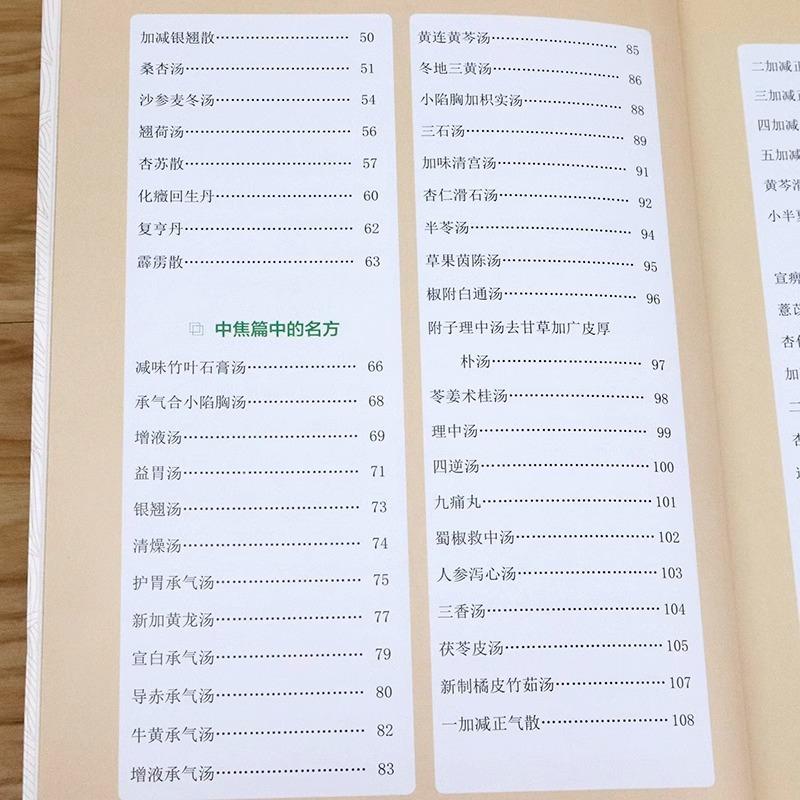 加减银翘散 50
桑杏汤 51
沙参麦冬汤 54
翘荷汤 56
杏苏散 57
化癥回生丹 60
复亨丹 62
霹雳散 63
中焦篇中的名方
减味竹叶石膏汤 66
承气合小陷胸汤 68
增液汤 69
益胃汤 71
银翘汤 73
清燥汤 74
护胃承气汤 75
新加黄龙汤 77
宣白承气汤 79
导赤承气汤 80
牛黄承气汤 82
增液承气汤 83
黄连黄芩汤 85
冬地三黄汤 86
小陷胸加枳实汤 88
三石汤 89
加味清宫汤 91
杏仁滑石汤 92
半苓汤 94
草果茵陈汤 95
椒附白通汤 96
附子理中汤去甘草加广皮厚
朴汤 97
苓姜术桂汤 98
理中汤 99
四逆汤 100
九痛丸 101
蜀椒救中汤 102
人参泻心汤 103
三香汤 104
茯苓皮汤 105
新制橘皮竹茹汤 107
一加减正气散 108
二加减正
三加减
四加减
五加减
黄芩滑
小半夏
宣痹
薏苡
杏仁
加
二